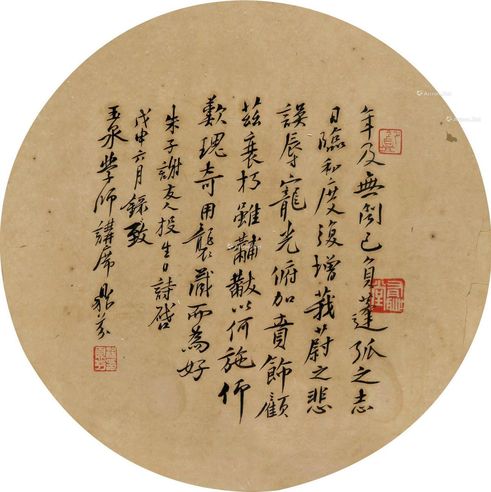 年及無聞已負蓬弧之志
日臨初度復增莪蔚之悲
誤辱寵光俯加賁飾顧
茲衰朽雖黼黻以何施仰
歎瑰奇用襲藏而為好
朱子謝友人投生日詩啓
戊申六月錄致
玉泉學師講席 兆芬